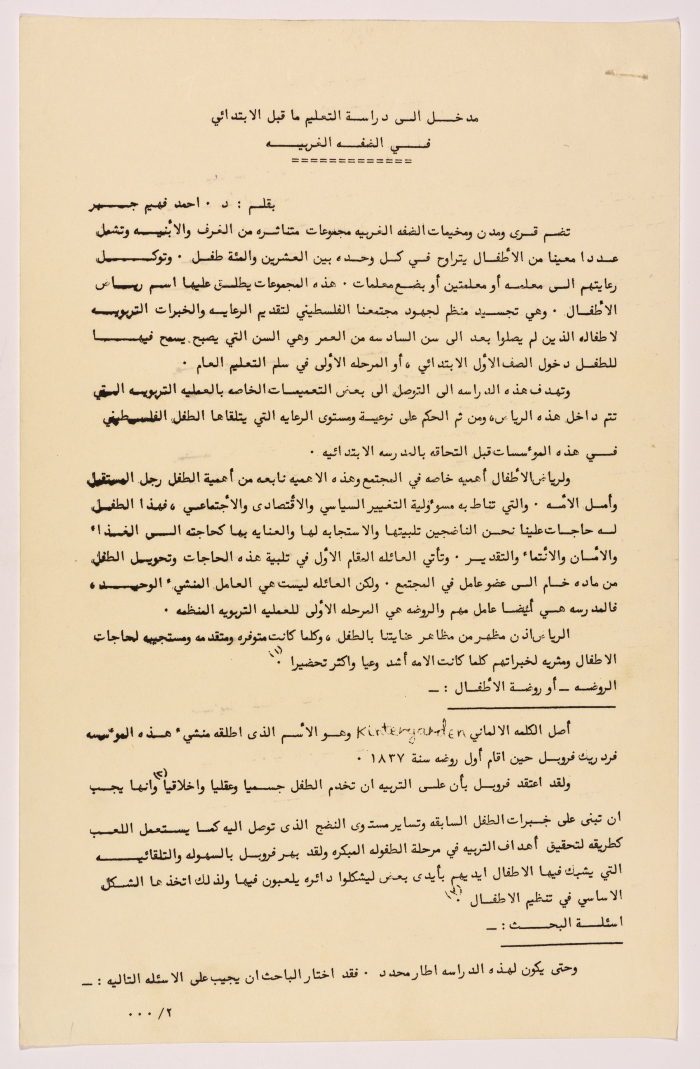 مدخــل الــى دراســة التعليم ما قبل الابتدائي
فــــي الضفــه الغربيــــه
=============
بقلــم : د ٠ احمد فهيم جـــبر
تضـم قــرى ومدن ومخيمات الضفه الغربيه مجموعات متناثــره من الغرف والأبنيــــه وتشمل
عــددا معينا من الأطفــال يتراوح فــي كــل وحــده بين العشرين والمئة طفــل ٠ وتوكـــــل
رعايتهم الــى معلمــه أو معلمتين أو بضــع معلمات ٠ هذه المجموعات يطلــق عليها اســم ريــاض
الأطفــال ٠ وهي تجسيــد منظم لجهــود مجتمعنا الفلسطيني لتقديم الرعايــه والخبرات التربويــــه
لاطفاله الذين لم يصلوا بعد الى سن السادسه من العمر وهي السن التي يصبح يسمح فيهــــا
للطفــل دخول الصف الأول الابتدائي ، أو المرحله الأولى في سلم التعليم العام ٠
وتهدف هذه الدراسه الى التوصل الى بعض التعميمات الخاصه بالعمليه التربويــه الــتي
تتم داخل هذه الرياض، ومن ثم الحكم على نوعيــة ومستوى الرعايه التي يتلقاها الطفل الفلســطيني
فــــي هذه المؤسسات قبل التحاقه بالمدرسه الابتدائيه ٠
ولرياض الأطفال أهميه خاصه في المجتمع وهذه الاهميه نابعه من أهمية الطفل رجل المستقبل
وأمــل الأمــه ٠ والتي تناط به مسؤولية التغيير السياسي والأقتصادى والأجتماعــي ، فهذا الطفــل
لــه حاجــات علينا نحــن الناضجين تلبيتها والاستجابه لها والعنايه بها كحاجته الــــى الغــذاء
والأمــان والأنتماء والتقديــر ٠ وتأتي العائلــه المقام الأول في تلبية هذه الحاجات وتحويــل الطفل
من ماده خــام الــى عضو عامل في المجتمع ٠ ولكن العائلــه ليست هي العامل المنشيء الوحيـــد ،
فالمدرسه هــي أيضــا عامل مهم والروضه هي المرحله الأولى للعمليه التربويه المنظمه ٠
الرياض اذن مظهر من مظاهر عنايتنا بالطفل ، وكلما كانت متوفره ومتقدمه ومستجيبه لحاجات
الاطفال ومثريه لخبراتهم كلما كانت الامه أشد وعيا واكثر تحضيرا (١) ٠
الروضــه ــ أو روضــة الأطفــال : ــ
أصل الكلمه الالماني Kintergarden وهــو الأســم الذى اطلقه منشيء هــذه المؤسسه
فردريك فروبــل حين اقام أول روضه سنة ١٨٣٧ ٠
ولقد اعتقد فروبــل بأن علــى التربيه ان تخدم الطفل جسميــا وعقليا واخلاقيا (٢) وانها يجــب
ان تبنى على خــبرات الطفل السابقه وتساير مستوى النضج الذى توصل اليه كمــا يستعمل اللعــب
كطريقه لتحقيق أهــداف التربيه في مرحلة الطفوله المبكره ولقد بهــر فروبــل بالسهوله والتلقائيــــه
التي يشبك فيهــا الاطفال ايديهم بأيدى بعض ليشكلوا دائره يلعبون فيها ولذلك اتخذ هــا الشــكل
الاساسي في تنظيم الاطفال (٣) ٠
اسئلــة البحــث : ــ
وحتى يكون لهــذه الدراسه اطار محدد ٠ فقد اختار الباحث ان يجيب على الاسئله التاليه : ــ
٠٠٠ /٢